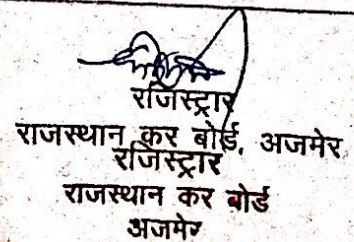 रजिस्ट्रार
राजस्थान कर बोर्ड, अजमेर
रजिस्ट्रार
राजस्थान कर बोर्ड
अजमेर